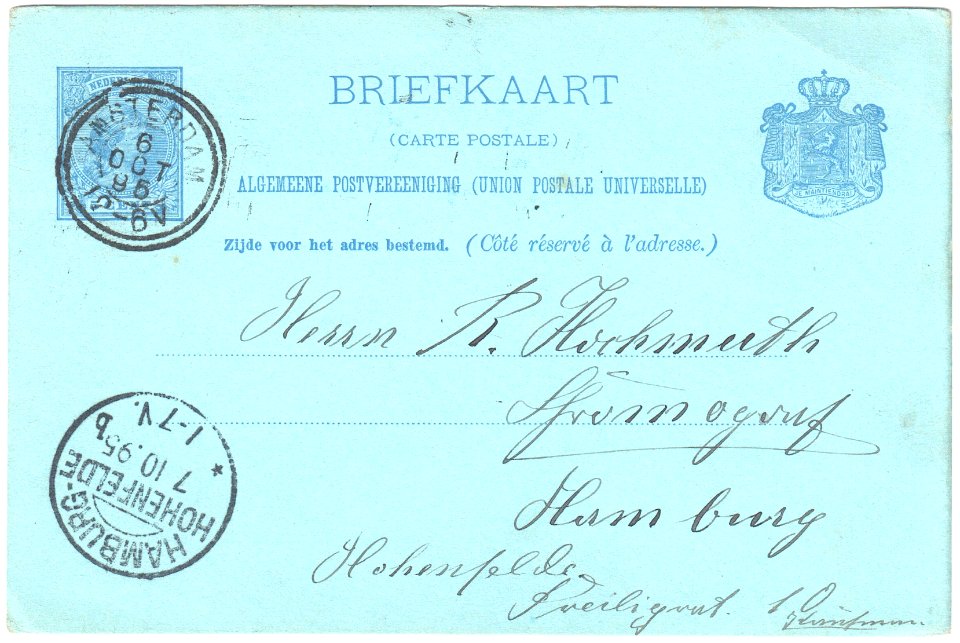 BRIEFKAART
(CARTE POSTALE)
ALGEMEENE POSTVEREENIGING (UNION POSTALE UNIVERSELLE)
Zijde voor het adres bestemd. (Côté réservé à l'adresse.)
AMSTERDAM
6
OCT
95
12-6V
Herrn R. Hochmuth
Hamburg
Hohenfelde
HAMBURG-
HOHENFELDE
7 10.95 b
1-7V.